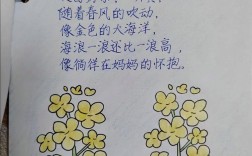 随着春风的吹动，
像金色的大海洋，
海浪一浪还比一浪高，
像徜徉在妈妈的怀抱。